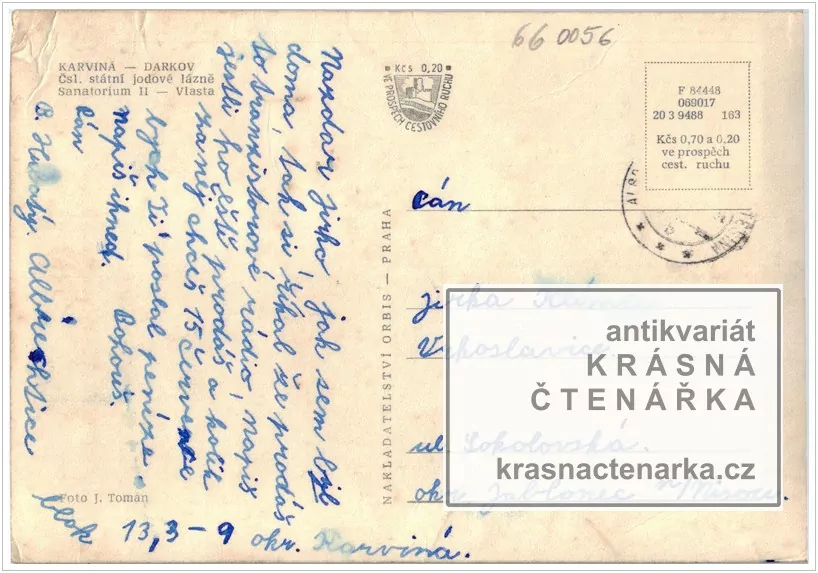 660056
KARVINÁ — DARKOV
Čsl. státní jodové lázně
Sanatorium II — Vlasta
Kčs 0,20
VE PROSPĚCH CESTOVNÍHO RUCHU
F 84448
069017
20 3 9488 163
Kčs 0,70 a 0,20
ve prospěch
cest. ruchu
Nazdar jirko, jak sem byl
doma, tak si říkal že prodáš
to tranzistorové rádio, napiš
jestli ho eště prodáš a kolik
zaněj chceš 15 července
bych Ti poslal peníze.
Napiš ihned. Bohouš.
Pán
B. Albrechtice
13,3-9 okr. Karviná.
NAKLADATELSTVÍ ORBIS — PRAHA
Foto J. Toman
Pán
jirka
ul Sokolovská.
okr Jablonec n/Nisou.
antikvariát
KRÁSNÁ
ČTENÁŘKA
krasnactenarka.cz